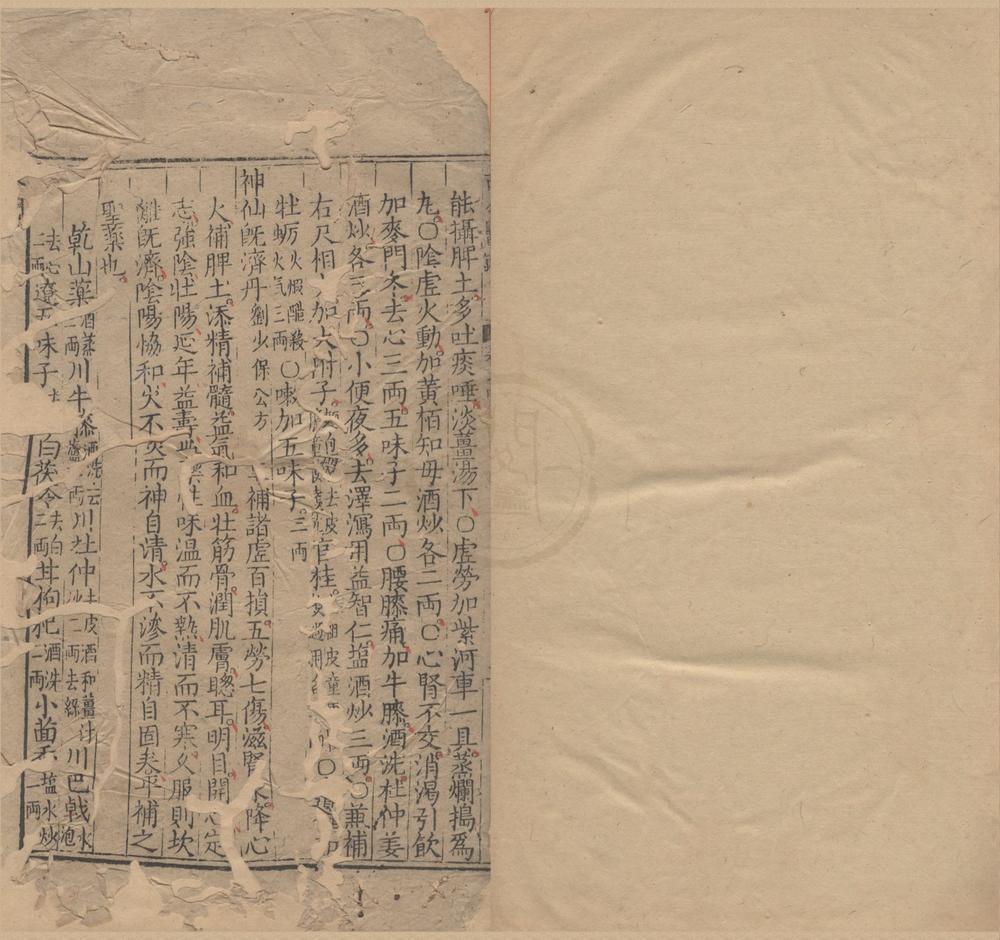 能攝脾土多吐痰唾淡薑湯下○虛勞加紫河車一具蒸爛搗為
丸○陰虛火動加黃栢知毋酒炒各二兩○心腎不交消渴引飲
加麥門冬去心三兩五味子二兩○腰膝痛加牛膝酒洗杜仲姜
酒炒各三兩○小便夜多去澤瀉用益智仁塩酒炒三兩○兼補
右尺相加大附子去皮官桂
牡蠣火煆醋殺火气三兩○嗽加五味子三兩
神仙既濟丹劉少保公方補諸虛百損五勞七傷滋腎水降心
火補脾土添精補髓益氣和血壯筋骨潤肌膚聰耳明目開心定
志強陰壯陽延年益壽此性味溫而不熱清而不寒久服則坎
離既濟陰陽恊和火不炎而神自清水不滲而精自固养平補之
聖藥也
乾山藥酒蒸二兩川牛膝酒洗川杜仲去皮酒和薑汁二兩去絲川巴戟水泡
去心二兩遠五味子白茯苓去白二兩甘枸杞酒洗一兩小茴香塩水炒一兩